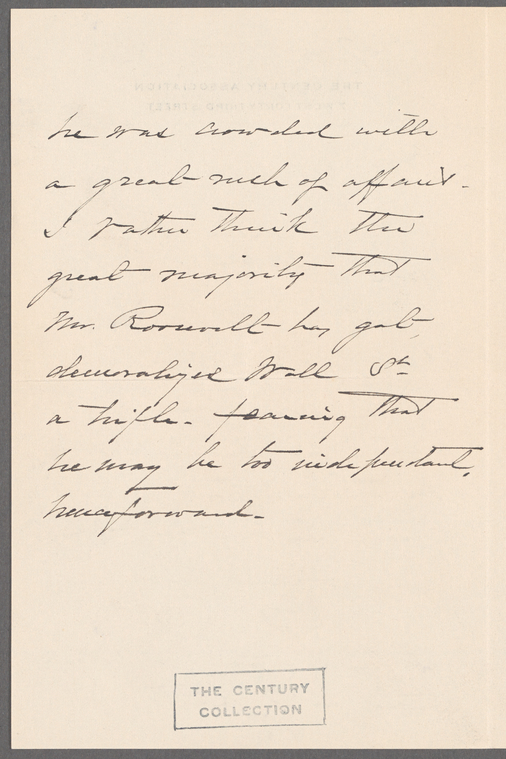 he was crowded with
a great rush of affairs.
I rather think the
great majority that
Mr. Roosevelt has got,
demoralizes Wall St
a trifle - fearing that
he may be too independent,
henceforward -
THE CENTURY
COLLECTION